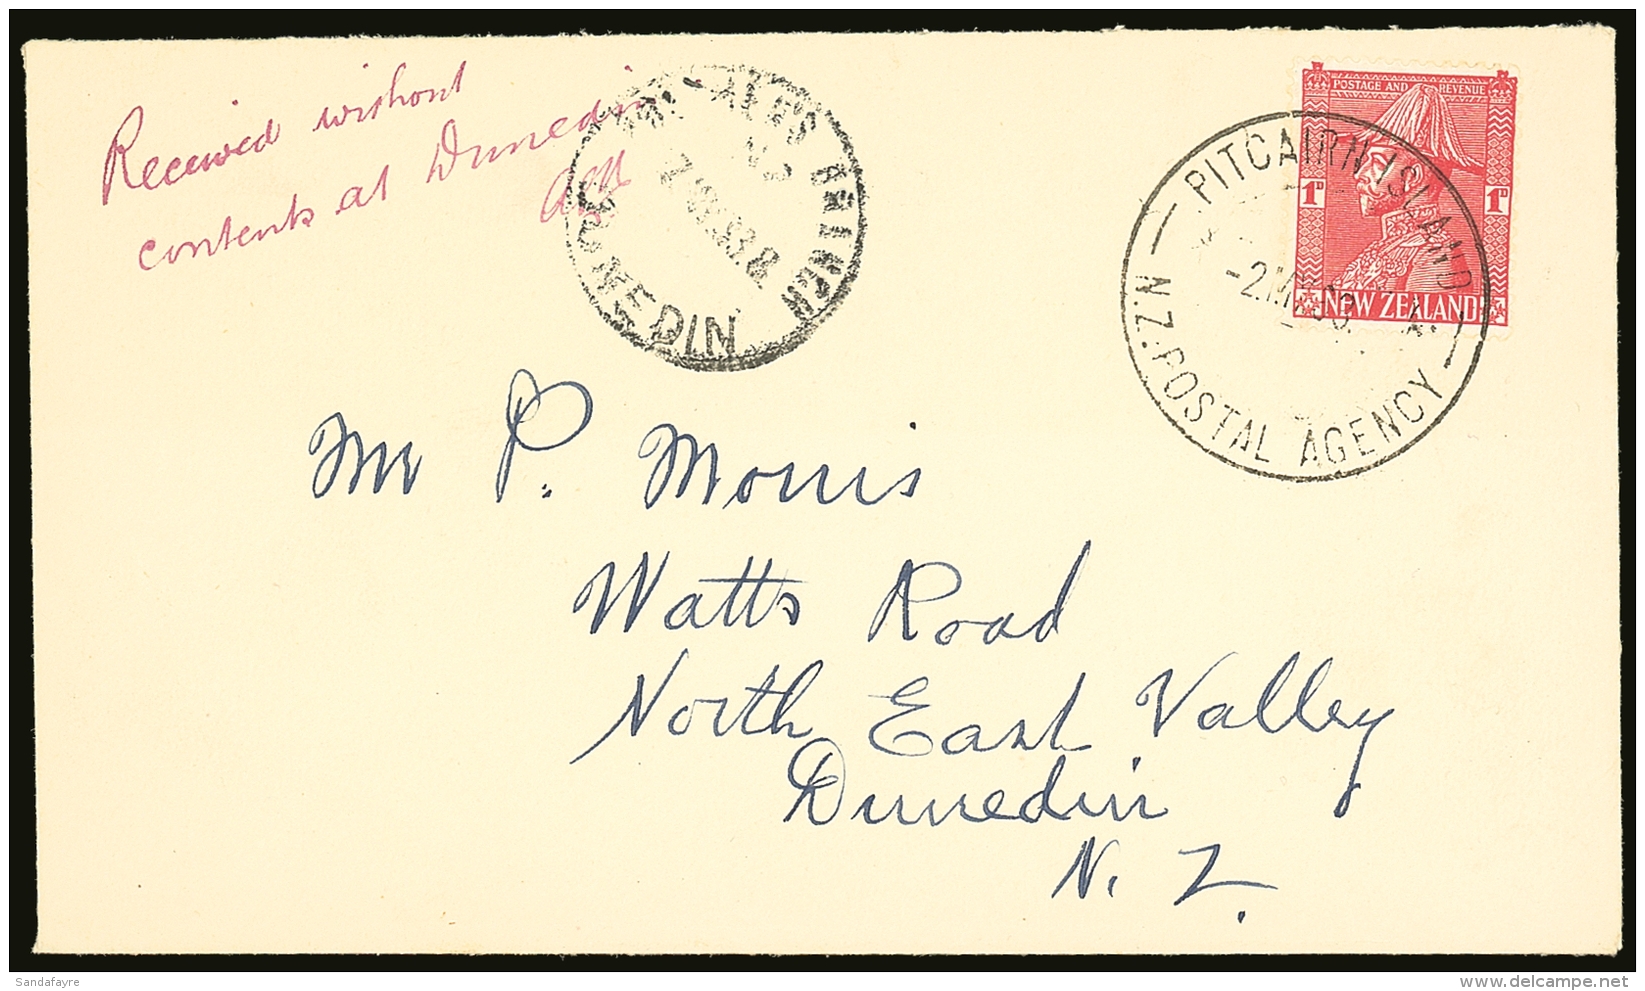 Received without
contents at Dunedin
BRANCH
DUNEDIN
POSTAGE AND REVENUE
1D 1D
NEW ZEALAND
PITCAIRN ISLAND
-2.M
N.Z. POSTAL AGENCY
Mr P. Morris
Watts Road
North East Valley
Dunedin
N. Z.
Sandafayre
delcampe.net